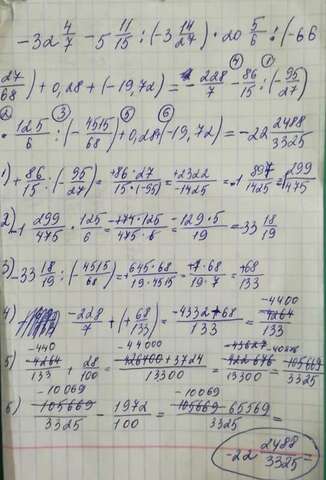 -32 4/7 - 5 11/15 : (-3 14/27) · 20 5/6 : (-66
27/68) + 0,28 + (-19,72) = - 228/7 - 86/15 : (- 95/27)
· 125/6 : (- 4515/68) + 0,28 + (-19,72) = -22 2488/3325
1) + 86/15 : (- 95/27) = +86·27/15·(-95) = +2322/-1425 = -1 897/1425 = 1 299/475
2) -1 299/475 · 125/6 = -774·125/475·6 = -129·5/19 = 33 18/19
3) -33 18/19 : (- 4515/68) = +645·68/19·4515 = +1·68/19·7 = +68/133
4) -228/7 + (+ 68/133) = -4332+68/133 = -4400 4264/133
5) -440 -4264/133 + 28/100 = -44000 -426400+3724/13300 = /13300 = 105669/3325
6) -10069 105669/3325 - 1972/100 = -10069 105669-65569/3325 =
-22 2488/3325 =